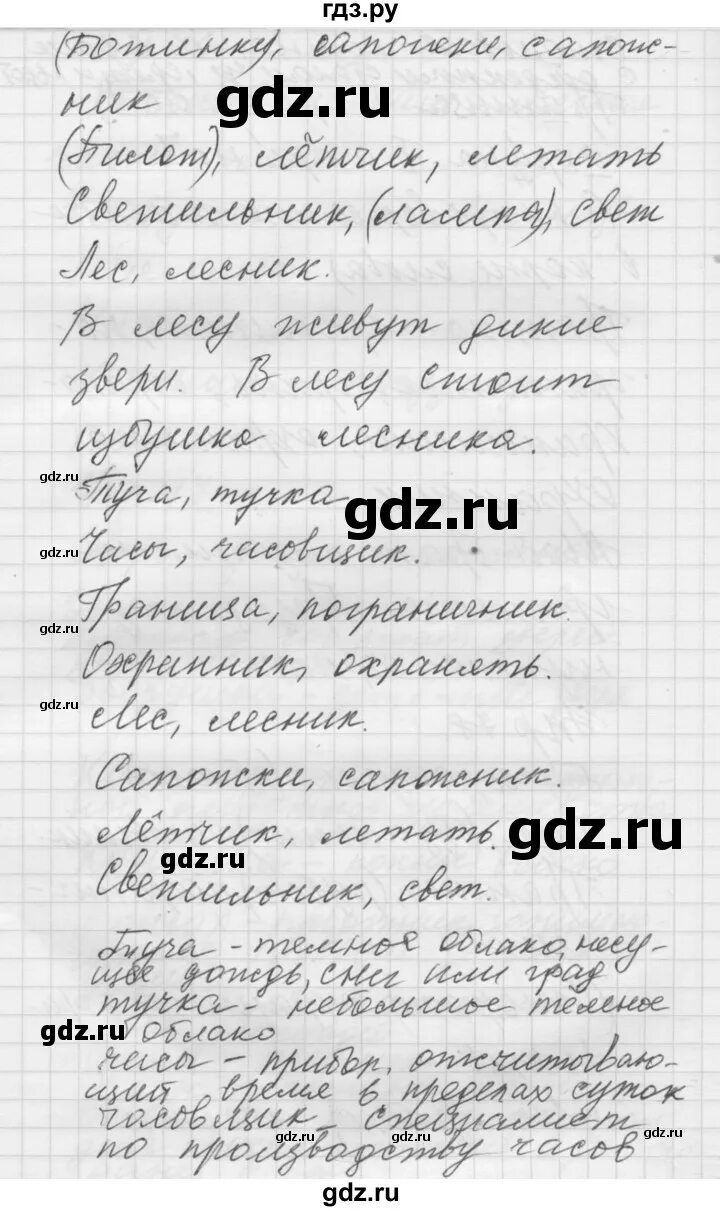 гдз.ру
(Ботинки), сапожки, сапож-
ник
gdz.ru
(Пилот), лётчик, летать
Светильник, (лампа), свет
Лес, лесник.
В лесу живут дикие
звери. В лесу стоит
избушка лесника.
gdz.ru
Туча, тучка
gdz.ru
gdz.ru
Часы, часовщик.
Граница, пограничник.
gdz.ru
Охранник, охранять.
gdz.ru
Лес, лесник.
Сапожки, сапожник.
gdz.ru
Лётчик, летать.
gdz.ru
Светильник, свет.
Туча - темное облако, несу-
щее дождь, снег или град
тучка - небольшое темное
gdz.ru
облако
часы - прибор, отсчитываю-
щий время в пределах суток
часовщик - специалист
gdz.ru
gdz.ru
gdz.ru
по производству часов
gdz.ru